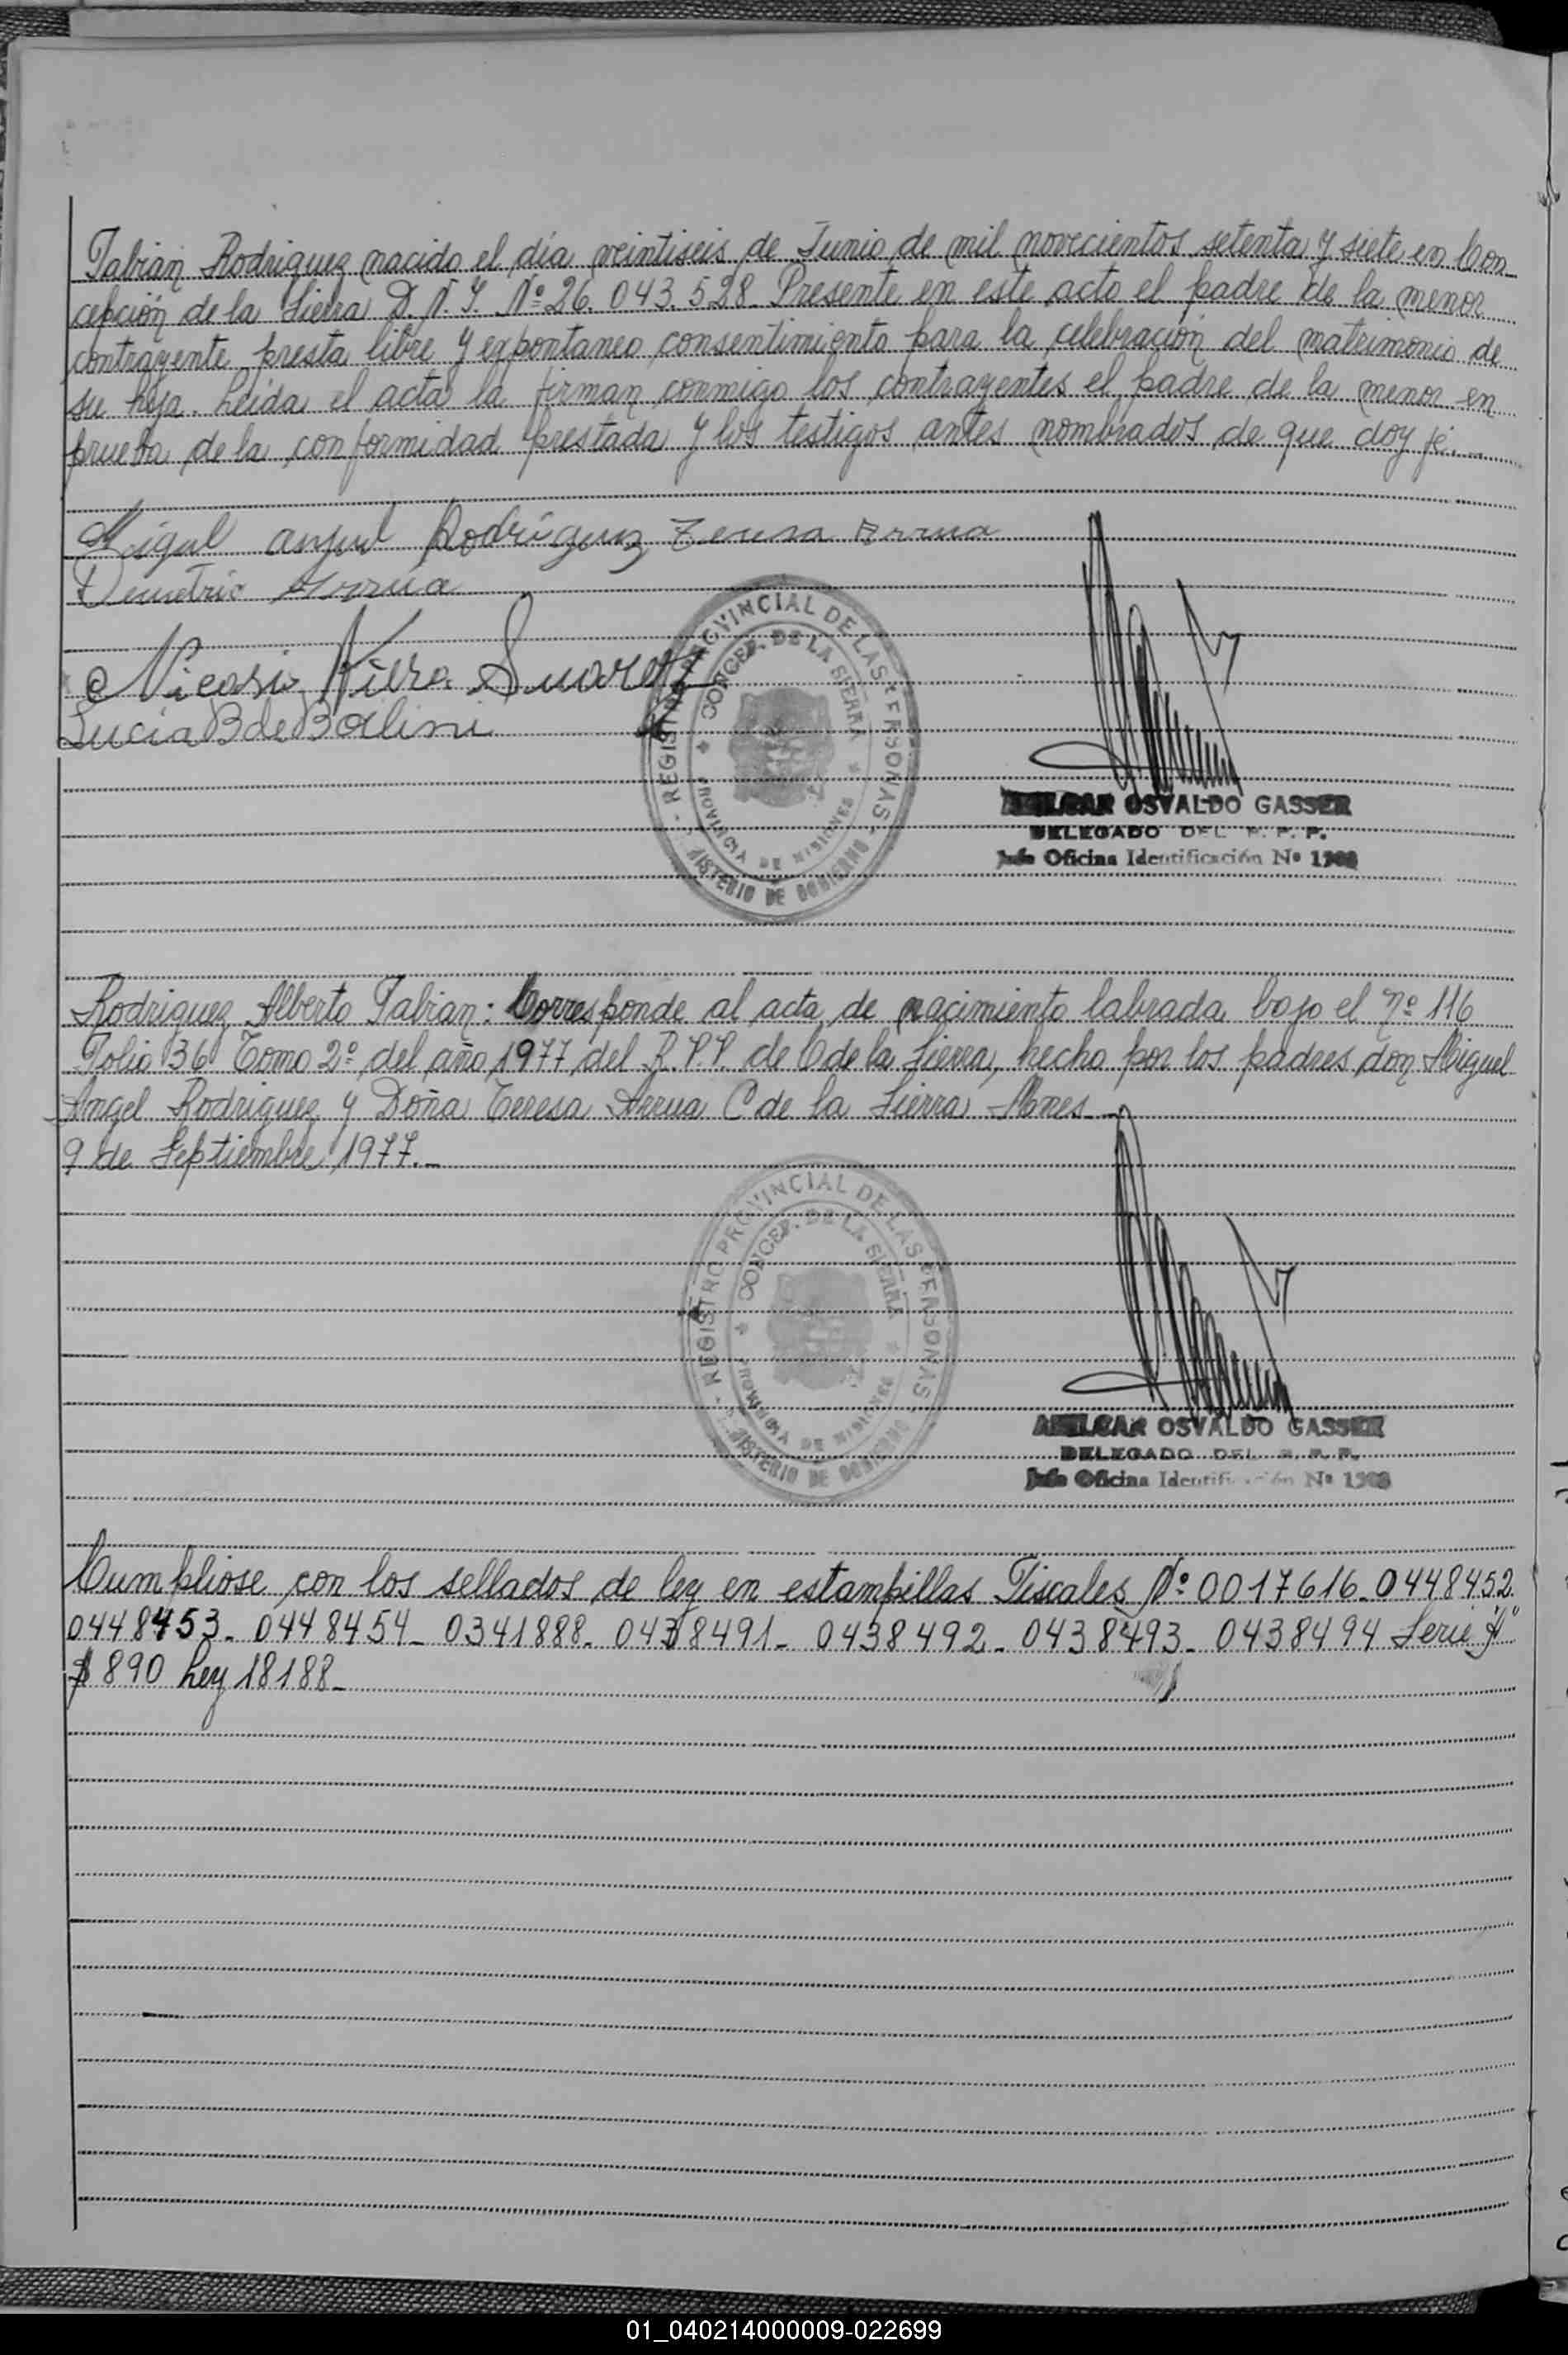 Fabián Rodriguez nacido el día veintiseis de Junio de mil novecientos setenta y siete en Con
cepción de la Sierra D. N. I. Nº 26.043.528. Presente en este acto el padre de la menor
contrayente presta libre y expontaneo consentimiento para la celebración del matrimonio de
su hija. Leída el acta la firman conmigo los contrayentes el padre de la menor en
prueba de la conformidad prestada y los testigos antes nombrados de que doy fé.
Migul angul Rodríguez Teresa Arrua
Demetrio Arrúa
Nicasio Suarez
Lucia B de Bolini
REGISTRO PROVINCIAL DE LAS PERSONAS
CONCEP. DE LA SIERRA
PROVINCIA DE MISIONES
MINISTERIO DE GOBIERNO
AMILCAR OSVALDO GASSER
DELEGADO DEL R. P. P.
Jefe Oficina Identificación Nº
Rodriguez Alberto Fabian: Corresponde al acta de nacimiento labrada bajo el nº 116
Folio 36 Tomo 2º del año 1977 del R.P.P. de C de la Sierra, hecho por los padres don Miguel
Angel Rodriguez y Doña Teresa Arrua C de la Sierra Mnes.
9 de Septiembre 1977.-
REGISTRO PROVINCIAL DE LAS PERSONAS
CONCEP. DE LA SIERRA
PROVINCIA DE MISIONES
MINISTERIO DE GOBIERNO
AMILCAR OSVALDO GASSER
DELEGADO DEL R. P. P.
Jefe Oficina Identificación Nº
Cumpliose con los sellados de ley en estampillas Fiscales Nº 0017616-0448452
0448453- 0448454- 0341888- 0438491- 0438492- 0438493- 0438494 Serie "A"
$ 890 Ley 18188-
01_040214000009-022699